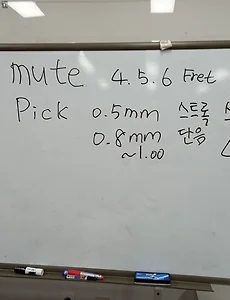 mute 4.5.6 Fret
Pick 0.5mm 스트록
0.8mm 단음
~1.00